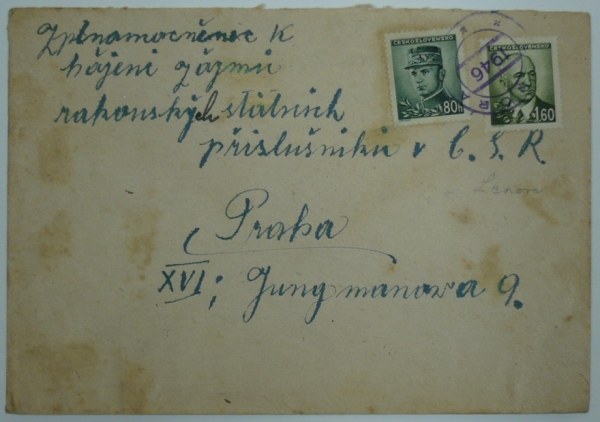 Zplnamocněnec k
hájení zájmů
rakouských státních
příslušníků v Č. S. R.
Praha
XVI; Jungmanova 9.
ČESKOSLOVENSKO
80h
ČESKOSLOVENSKO
1.60
1946